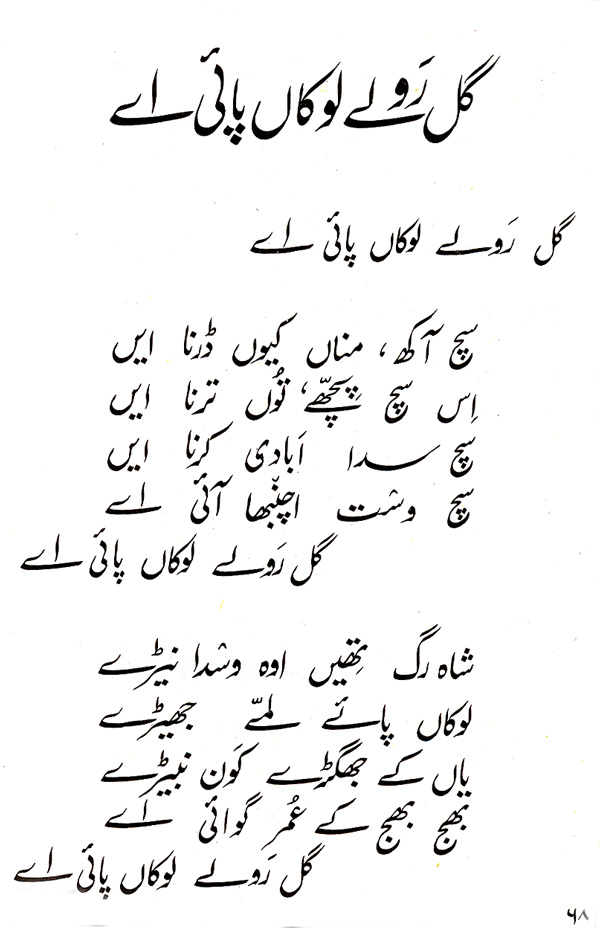 گل رَولے لوکاں پائی اے
گل رَولے لوکاں پائی اے
سچ آکھ، مناں کیوں ڈرنا ایں
اِس سچ پِچھّے، تُوں ترنا ایں
سچ سدا اَبادی کرنا ایں
سچ وشت اچنبّھا آئی اے
گل رَولے لوکاں پائی اے
شاہ رگ تھِیں اوہ وشدا نیڑے
لوکاں پائے لمّے جھیڑے
یاں کے جھگڑے کَون نبیڑے
بھج بھج کے عُمر گوائی اے
گل رَولے لوکاں پائی اے
٦٨